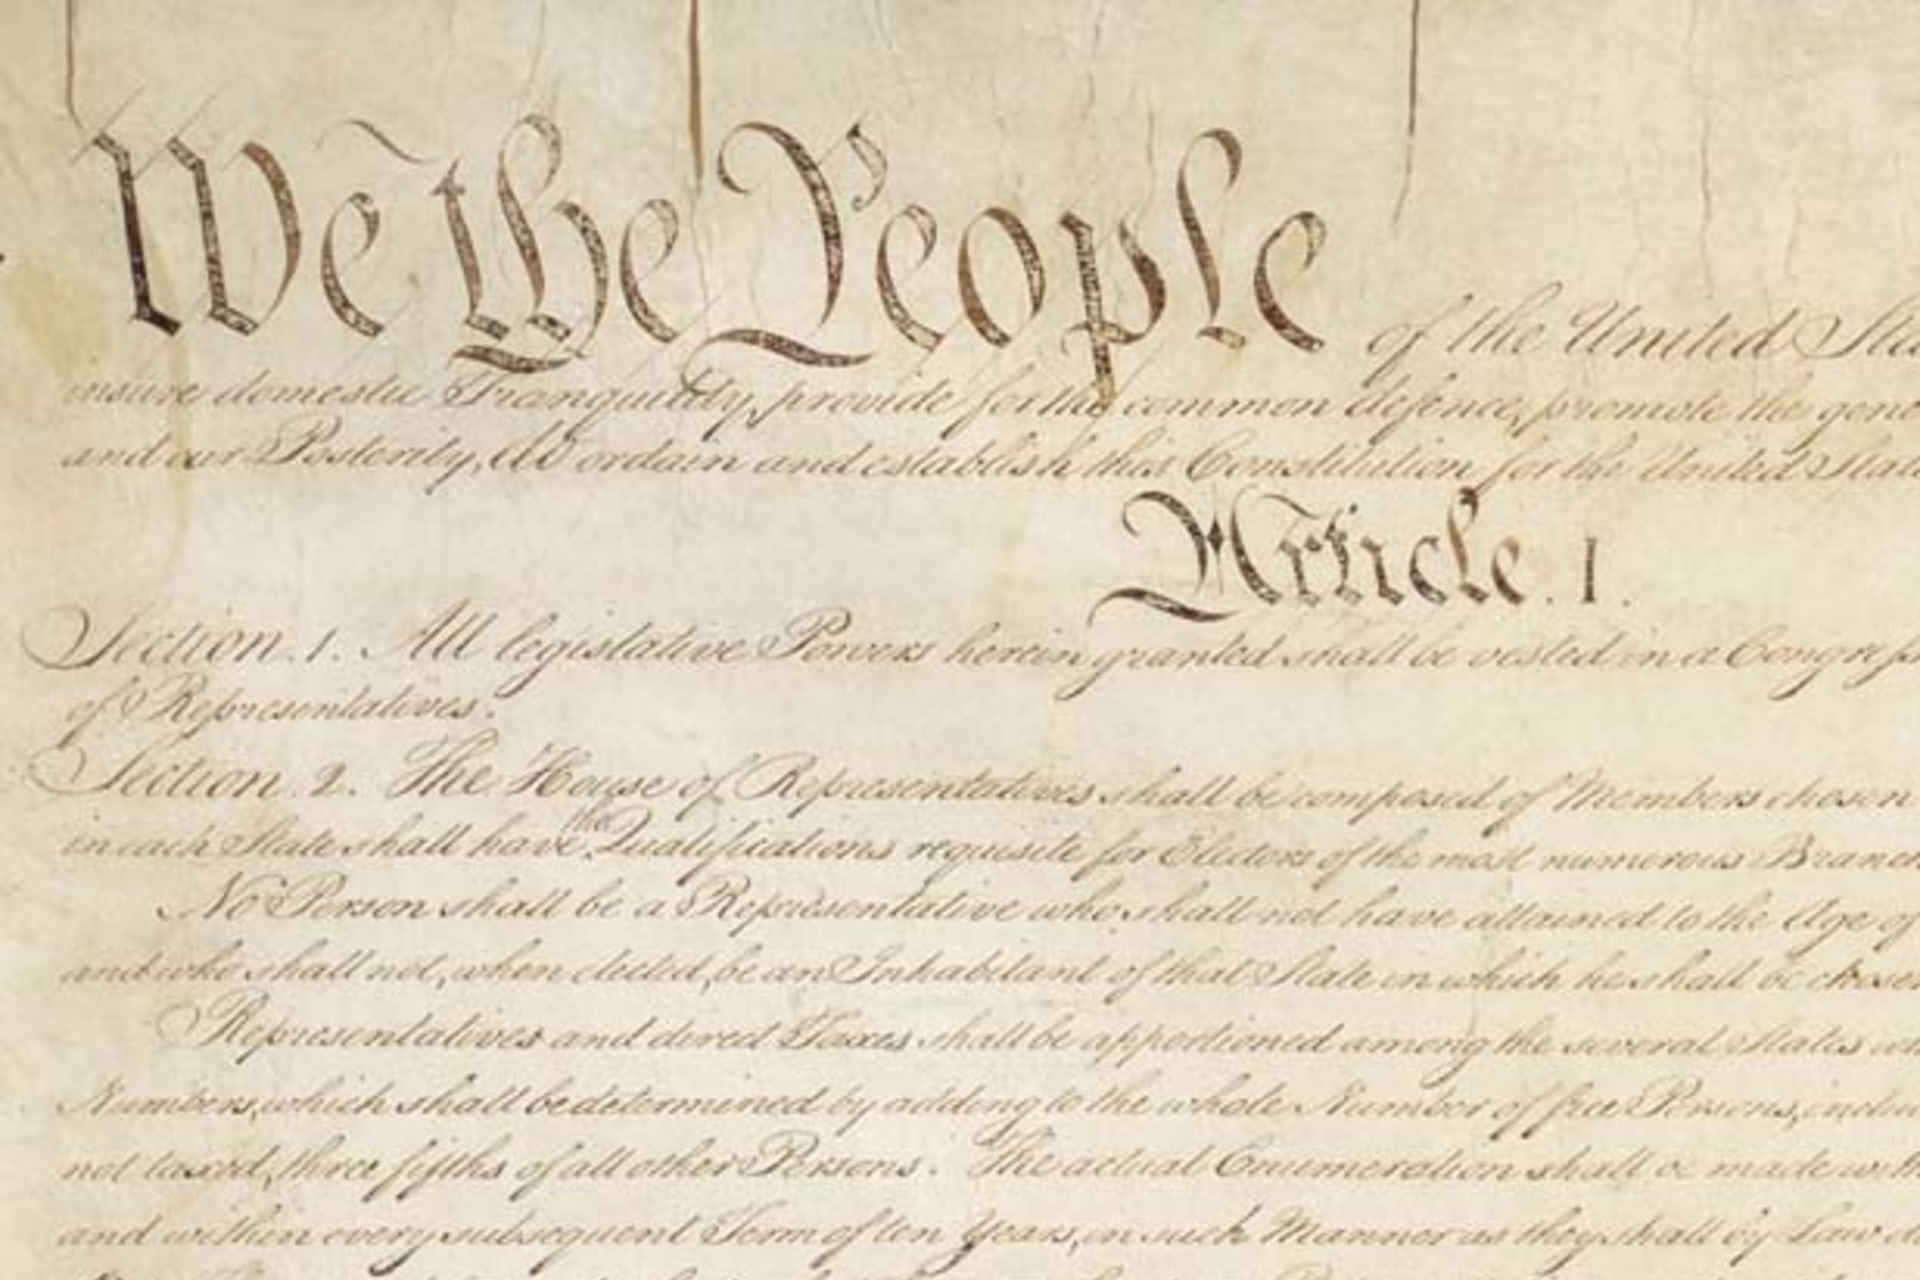 We the People of the United Sta
insure domestic Tranquility, provide for the common defence, promote the gene
and our Posterity, do ordain and establish this Constitution for the United State
Article. I.
Section. 1. All legislative Powers herein granted shall be vested in a Congress
of Representatives.
Section. 2. The House of Representatives shall be composed of Members chosen
in each State shall have the Qualifications requisite for Electors of the most numerous Branch
No Person shall be a Representative who shall not have attained to the Age of
and who shall not, when elected, be an Inhabitant of that State in which he shall be chosen
Representatives and direct Taxes shall be apportioned among the several States wh
Numbers, which shall be determined by adding to the whole Number of free Persons, inclu
not taxed, three fifths of all other Persons. The actual Enumeration shall be made with
and within every subsequent Term of ten Years, in such Manner as they shall by Law d